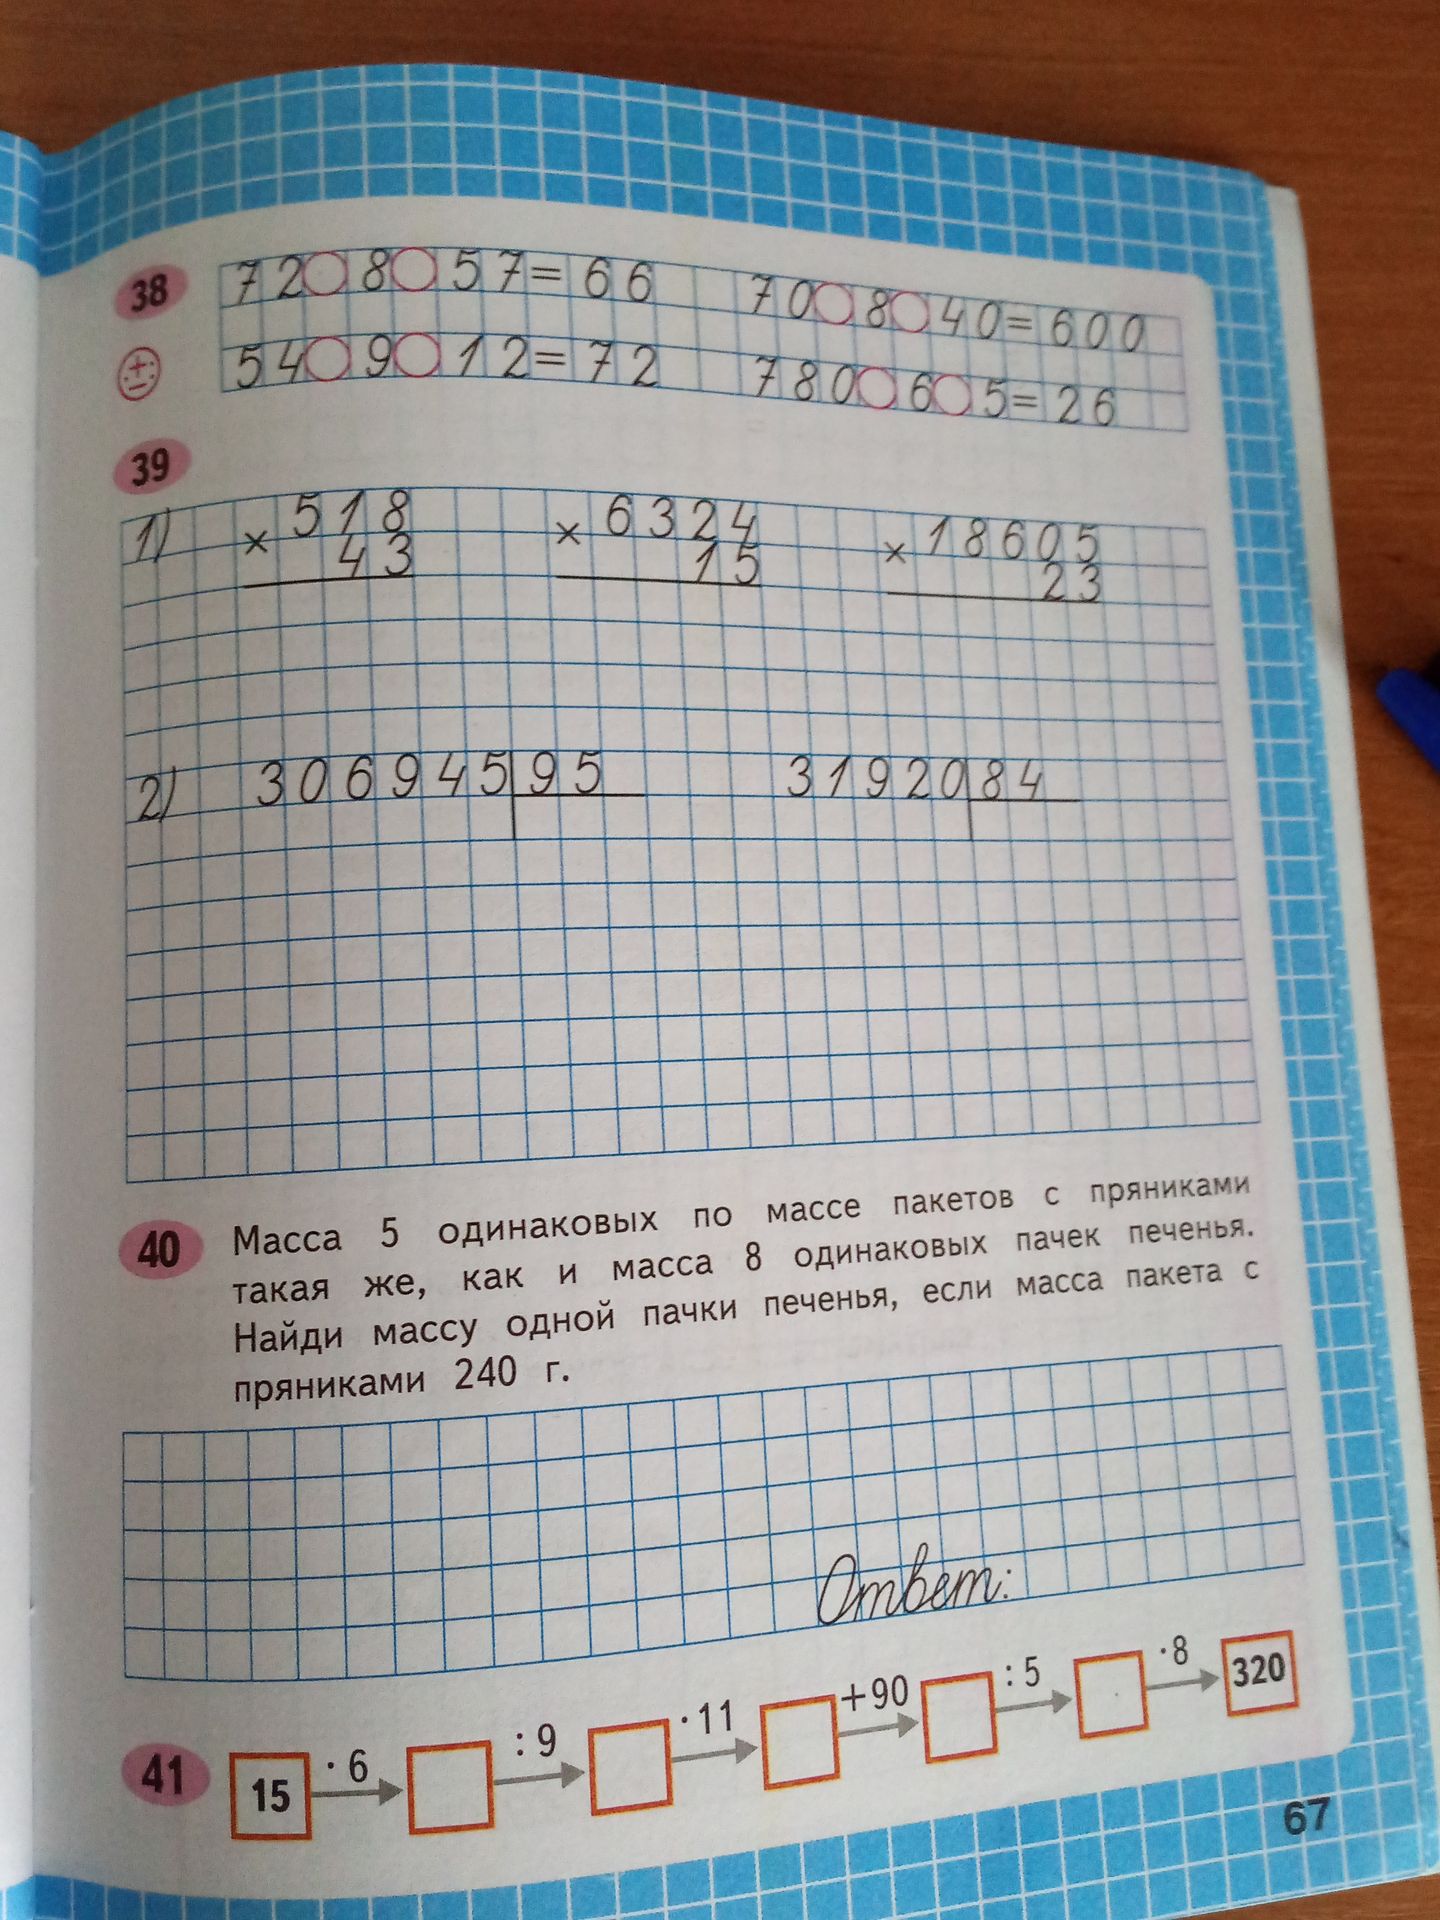 38
72○8○57=66 70○8○40=600
54○9○12=72 780○6○5=26
39
1) × 518 × 6324 × 18605
43 15 23
2) 306945 95 31920 84
40 Масса 5 одинаковых по массе пакетов с пряниками
такая же, как и масса 8 одинаковых пачек печенья.
Найди массу одной пачки печенья, если масса пакета с
пряниками 240 г.
Ответ:
41 15 · 6 : 9 · 11 +90 : 5 · 8 320
67